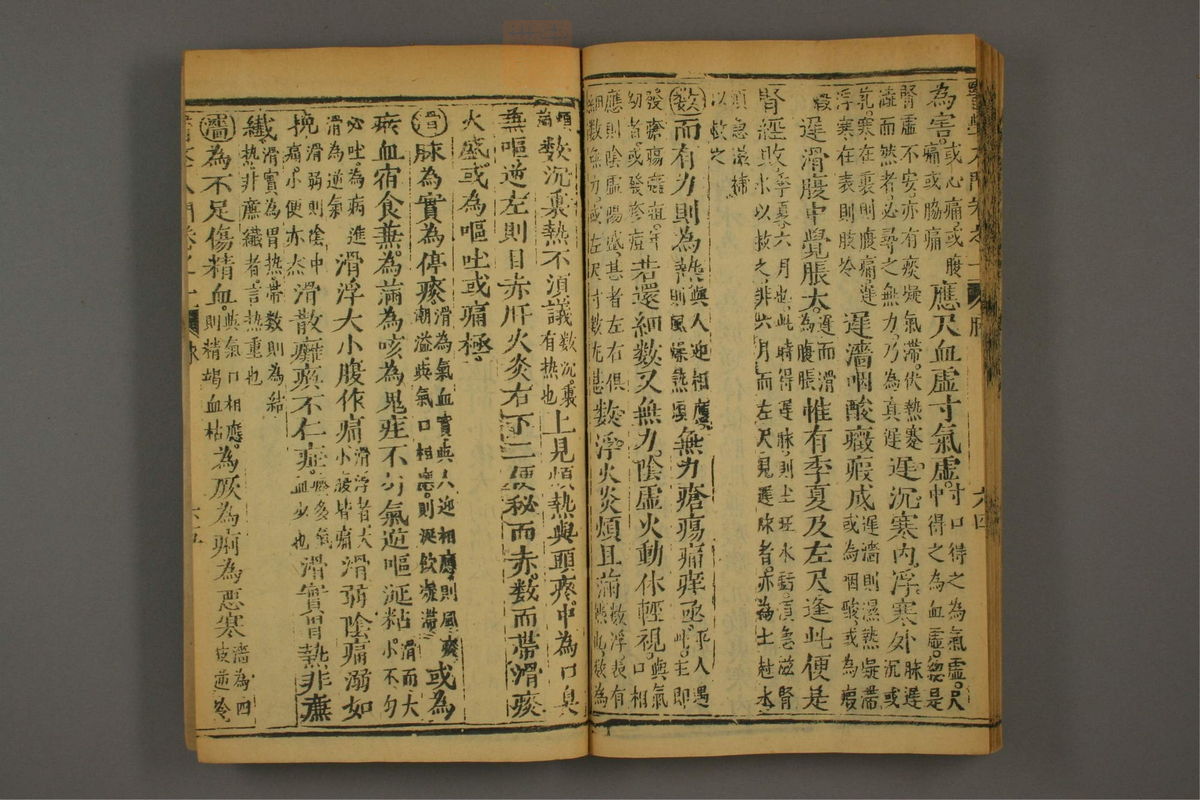 為害或心痛或腹痛或脇痛應尺血虛寸氣虛寸口得之為氣虛尺中得之為血虛總是
腎虛不安亦有痰凝氣滯伏熱蹇澁而然者必尋之無力乃為真遲遲沉寒內浮寒外脉遲沉或
乳寒在裏則腹痛遲浮寒在表則肢冷遲濇咽酸癥瘕成遲濇則濕熱凝滯或為咽酸或為癥
瘕遲滑腹中覺脹大遲而滑為腹脹惟有季夏及左尺逢此便是
腎經敗季夏六月也此時得遲脉則土班水虧須急滋腎水以救之非六月而左尺見遲脉者亦為土尅水
須急滋補以救之
數而有力則為熱與人迎相應則風燥熱煩無力瘡瘍痛痒亟平人遇此主即
發瘡瘍癰疽年幼者或發疹痘若還細數又無力陰虛火動休輕視與氣口相
應則陰虛陽盛甚者左右俱細數無力或左尺寸數尤甚數浮火炎煩且滿數浮表有熱此數為
煩滿數沉裏熱不須議數沉裏有熱也上見煩熱與頭疼中為口臭
兼嘔逆左則目赤肝火炎右下二便秘而赤數而帶滑痰
火盛或為嘔吐或痛極
滑脉為實為停痰滑為氣血實與人迎相應則風痰潮溢與氣口相應則涎飲凝滯或為
痰血宿食兼為滿為咳為鬼疰不勻氣逆嘔涎粘滑而大小不勻
必吐為病進滑為逆氣滑浮大小腹作痛滑浮者大小腹皆痛滑弱陰痛溺如
挽滑弱則陰中痛小便亦然滑散癱瘓不仁症痰多氣血少也滑實胃熱非痲
纖滑實為胃熱帶數則為結熱非痲纖者言熱重也
濇為不足傷精血與氣口相應則精竭血枯為厥為痹為惡寒濇為四肢逆冷